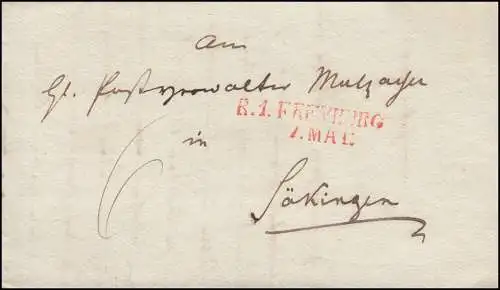 An
H. Postverwalter Mutzacher
R. 1. FREYBURG
7. MAI
in
6
Säkingen